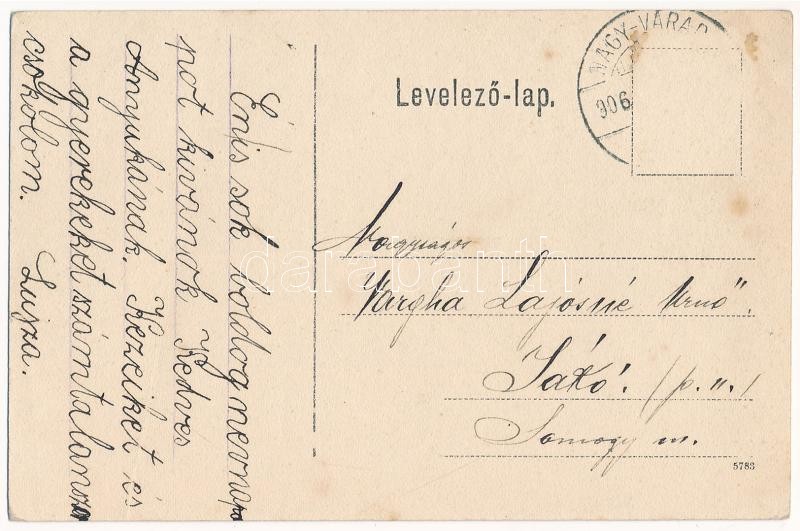 NAGY-VÁRAD
906
Levelező-lap.
Én is sok boldog nevna
pot kivánok Kedves
Anyukának. Kezeiket és
a gyerekeket számtalanszor
csokolom.
Lujza.
Nagyságos
Vargha Lajosné Urnő".
Jákó. (p. u.)
Somogy m.
5783
darabanth